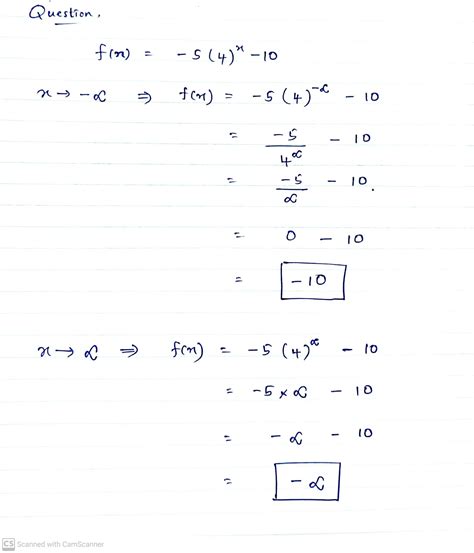 Question.
f(x) = -5(4)^x - 10
x → -∝ ⇒ f(x) = -5(4)^-∝ - 10
= -5/4^∝ - 10
= -5/∝ - 10.
= 0 - 10
= -10
x → ∝ ⇒ f(x) = -5(4)^∝ - 10
= -5 × ∝ - 10
= -∝ - 10
= -∝
CS Scanned with CamScanner